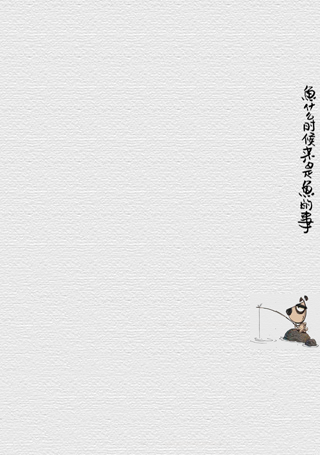 魚什么时候来是魚的事